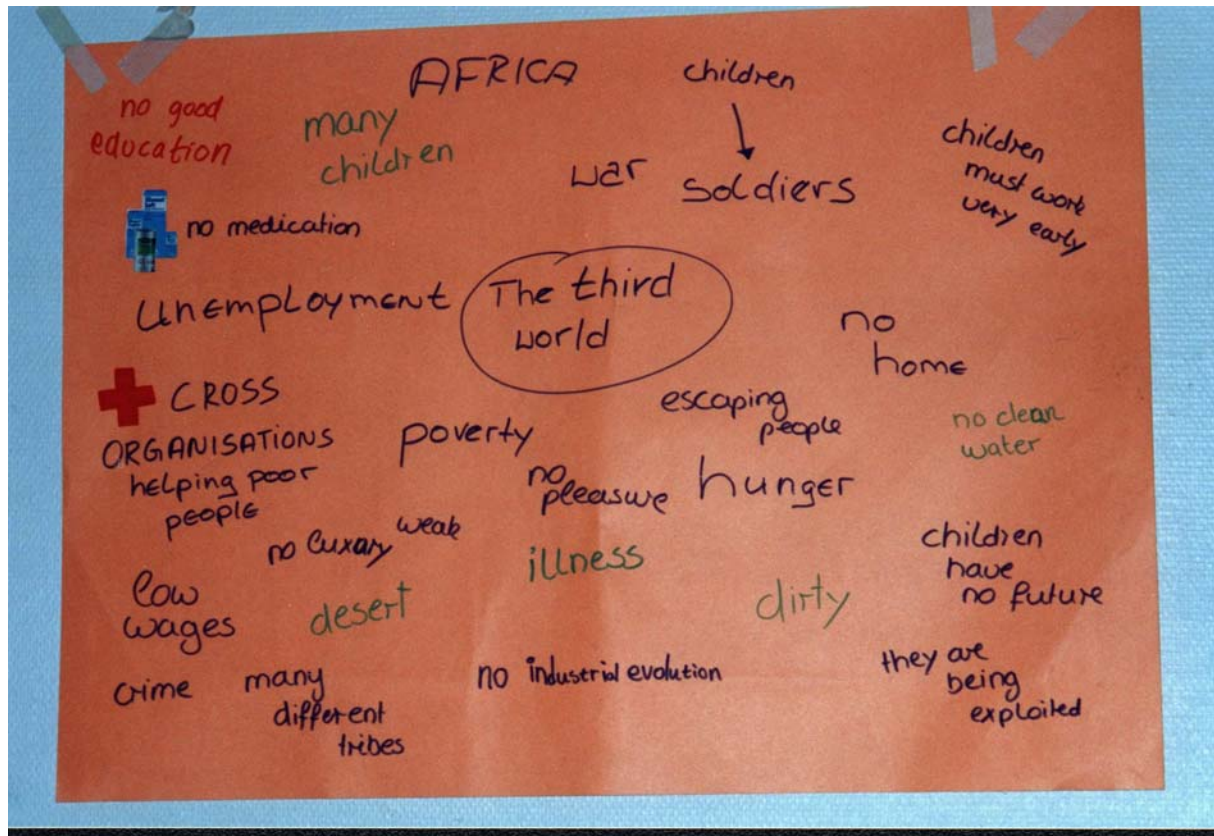 AFRICA
children
soldiers
no good
education
many
children
war
children
must work
very early
no medication
unemployment
The third
world
no
home
CROSS
ORGANISATIONS
helping poor
people
poverty
escaping
people
no clean
water
no
pleasure
hunger
no luxary
weak
illness
children
have
no future
low
wages
desert
dirty
crime
many
different
tribes
no industrial evolution
they are
being
exploited